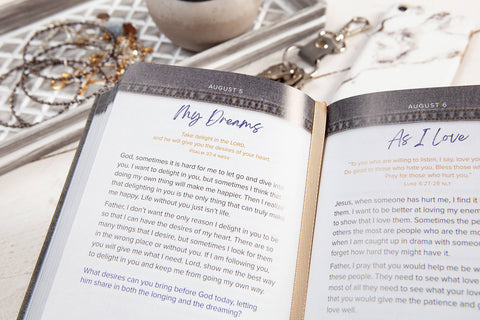 AUGUST 5
My Dreams
Take delight in the LORD,
and he will give you the desires of your heart.
God, sometimes it is hard for me to let go and dive into
you. I want to delight in you, but sometimes I think that
doing my own thing will make me happier. Then I realize
that delighting in you is the only thing that can truly make
me happy. Life without you just isn't life.
Father, I don't want the only reason I delight in you to be
so that I can have the desires of my heart. There are so
many things that I desire, but sometimes I look for them
in the wrong place or without you. If I am following you,
you will give me what I need. Lord, show me the best way
to delight in you and keep me from going my own way.
What desires can you bring before God today, letting
him share in both the longing and the dreaming?
AUGUST 6
As I Love
"To you who are willing to listen, I say, love you
Do good to those who hate you. Bless those w
Pray for those who hurt you."
LUKE 6:27-28 NLT
Jesus, when someone has hurt me, I find it
them. I want to be better at loving my enem
to show that I love them. Sometimes the pe
others the most are people who are the mo
when I am caught up in drama with someon
forget how hard they might have it.
Father, I pray that you would help me be w
these people. They need to see your love i
most of all they need to see what your love
that you would give me the patience and g
love well.